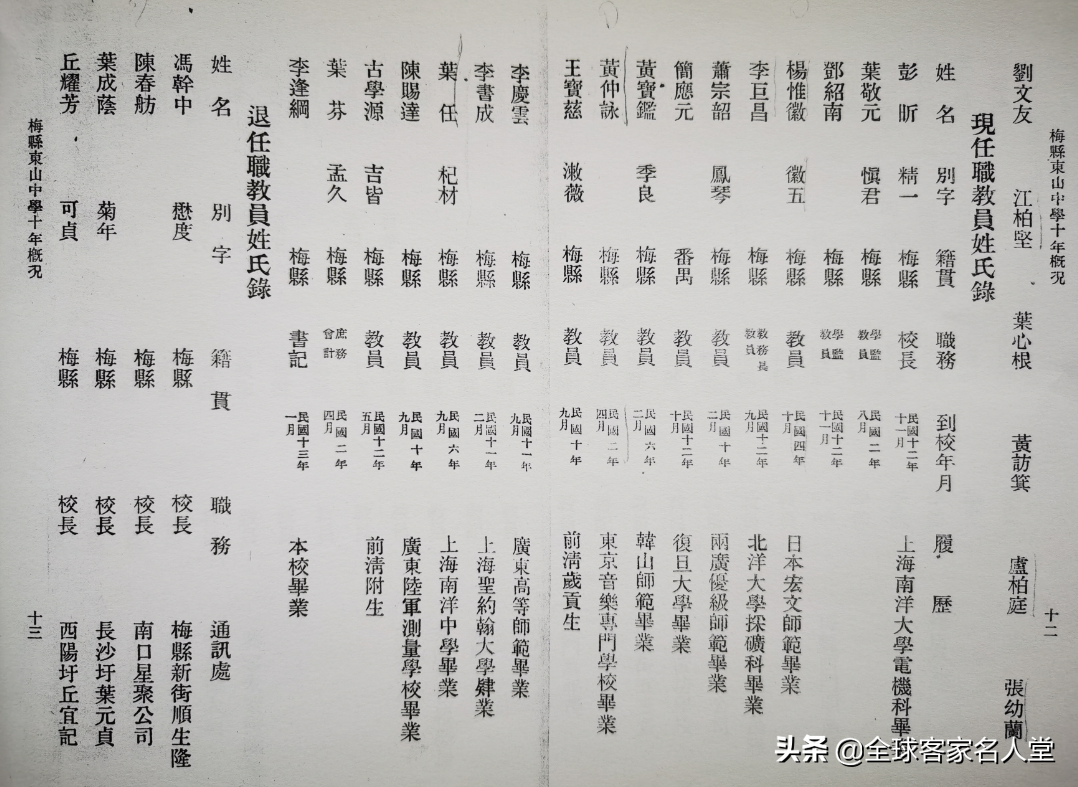 梅縣東山中學十年概況 十二
劉文友 江柏堅 葉心根 黃訪箕 盧柏庭 張幼蘭
現任職教員姓氏錄
姓名 別字 籍貫 職務 到校年月 履歷
彭昕 精一 梅縣 校長 民國十二年十一月 上海南洋大學電機科畢
葉敬元 愼君 梅縣 學監教員 民國二年八月
鄧紹南 梅縣 學監教員 民國十二年十一月
楊惟徽 徽五 梅縣 教員 民國四年十月 日本宏文師範畢業
李巨昌 梅縣 教務員教員 民國十二年九月 北洋大學採礦科畢業
蕭宗韶 鳳琴 梅縣 教員 民國十年二月 兩廣優級師範畢業
簡應元 番禺 教員 民國十二年十月 復旦大學畢業
黃寶鑑 季良 梅縣 教員 民國六年二月 韓山師範畢業
黃仲詠 梅縣 教員 民國二年四月 東京音樂專門學校畢業
王寶慈 潄薇 梅縣 教員 民國十年九月 前淸歲貢生
李慶雲 梅縣 教員 民國十一年九月 廣東高等師範畢業
李書成 梅縣 教員 民國十一年二月 上海聖約翰大學肄業
葉任 杞材 梅縣 教員 民國六年九月 上海南洋中學畢業
陳賜達 梅縣 教員 民國十年九月 廣東陸軍測量學校畢業
古學源 吉皆 梅縣 教員 民國十二年五月 前淸附生
葉芬 孟久 梅縣 庶務會計 民國二年四月
李逢綱 梅縣 書記 民國十三年一月 本校畢業
退任職教員姓氏錄
姓名 別字 籍貫 職務 通訊處
馮幹中 懋度 梅縣 校長 梅縣新街順生隆
陳春舫 梅縣 校長 南口星聚公司
葉成蔭 菊年 梅縣 校長 長沙圩葉元貞
丘耀芳 可貞 梅縣 校長 西陽圩丘宜記
梅縣東山中學十年概況 十三
头条 @全球客家名人堂